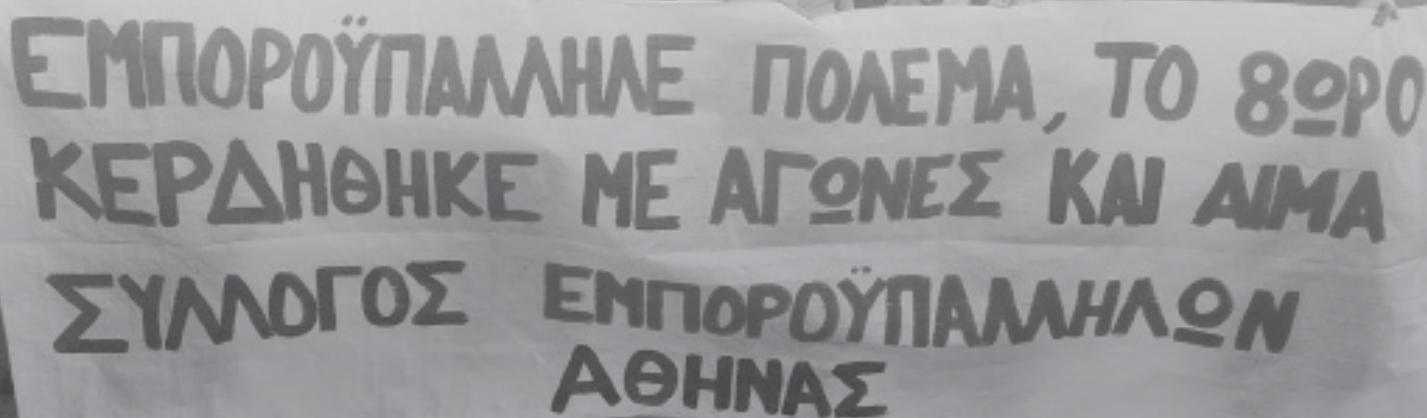 ΕΜΠΟΡΟΫΠΑΛΛΗΛΕ ΠΟΛΕΜΑ, ΤΟ 8ΩΡΟ
ΚΕΡΔΗΘΗΚΕ ΜΕ ΑΓΩΝΕΣ ΚΑΙ ΑΙΜΑ
ΣΥΛΛΟΓΟΣ ΕΜΠΟΡΟΫΠΑΛΛΗΛΩΝ
ΑΘΗΝΑΣ